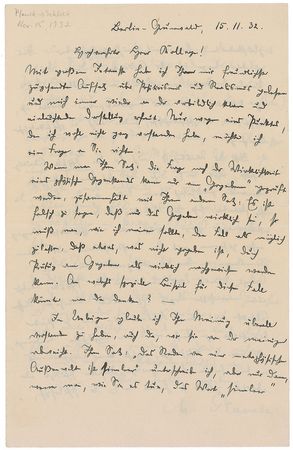 Planck to Schlick
Nov. 15 1932
Berlin-Grunewald, 15. 11. 32.
Hochgeehrter Herr Kollege!
Mit großem Interesse habe ich Ihren mir freundlichst
zugesandten Aufsatz über Positivismus und Realismus gelesen
und mich immer wieder an der vorbildlich klaren und
Darstellung erfreut. Nur wegen eines Punktes,
den ich wohl nicht ganz verstanden habe, möchte ich
eine Frage an Sie richten.
Wenn man Ihren Satz: die Frage nach der Wirklichkeit
eines physischen Gegenstands kann nur am „Gegebenen“ geprüft
werden, zusammenhält mit Ihrem andern Satz: Es ist
falsch zu sagen, daß nur das Gegebene wirklich sei, so
muß man, wie ich meinen sollte, den Fall als möglich
zulassen, daß etwas, was nicht gegeben ist, durch
Prüfung am Gegebenen als wirklich nachgewiesen werden
kann. An welches spezielle Beispiel für diesen Fall
könnte man da denken? —
Im Übrigen glaube ich Ihre Meinung überall
verstanden zu haben, auch da, wo sie von der meinigen
abweicht. Ihren Satz: „das Reden von einer metaphysischen
Außenwelt ist sinnleer“ unterschreibe ich, aber nur dann,
wenn man, wie Sie es tun, das Wort „sinnleer“